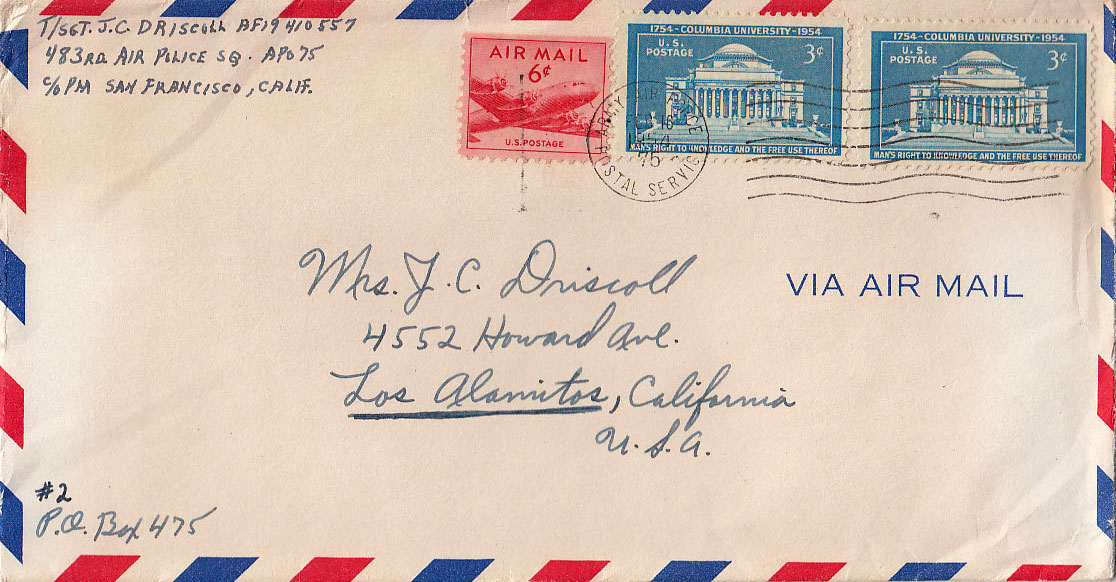 T/SGT. J.C. DRISCOLL AF19410557
483RD. AIR POLICE SQ. APO 75
C/O PM SAN FRANCISCO, CALIF.
AIR MAIL
6¢
U.S. POSTAGE
1754-COLUMBIA UNIVERSITY-1954
U.S. POSTAGE
3¢
MAN'S RIGHT TO KNOWLEDGE AND THE FREE USE THEREOF
1754-COLUMBIA UNIVERSITY-1954
U.S. POSTAGE
3¢
MAN'S RIGHT TO KNOWLEDGE AND THE FREE USE THEREOF
ARMY AIR FORCE
POSTAL SERVICE
VIA AIR MAIL
Mrs. J. C. Driscoll
4552 Howard Ave.
Los Alamitos, California
U.S.A.
#2
P.O. Box 475